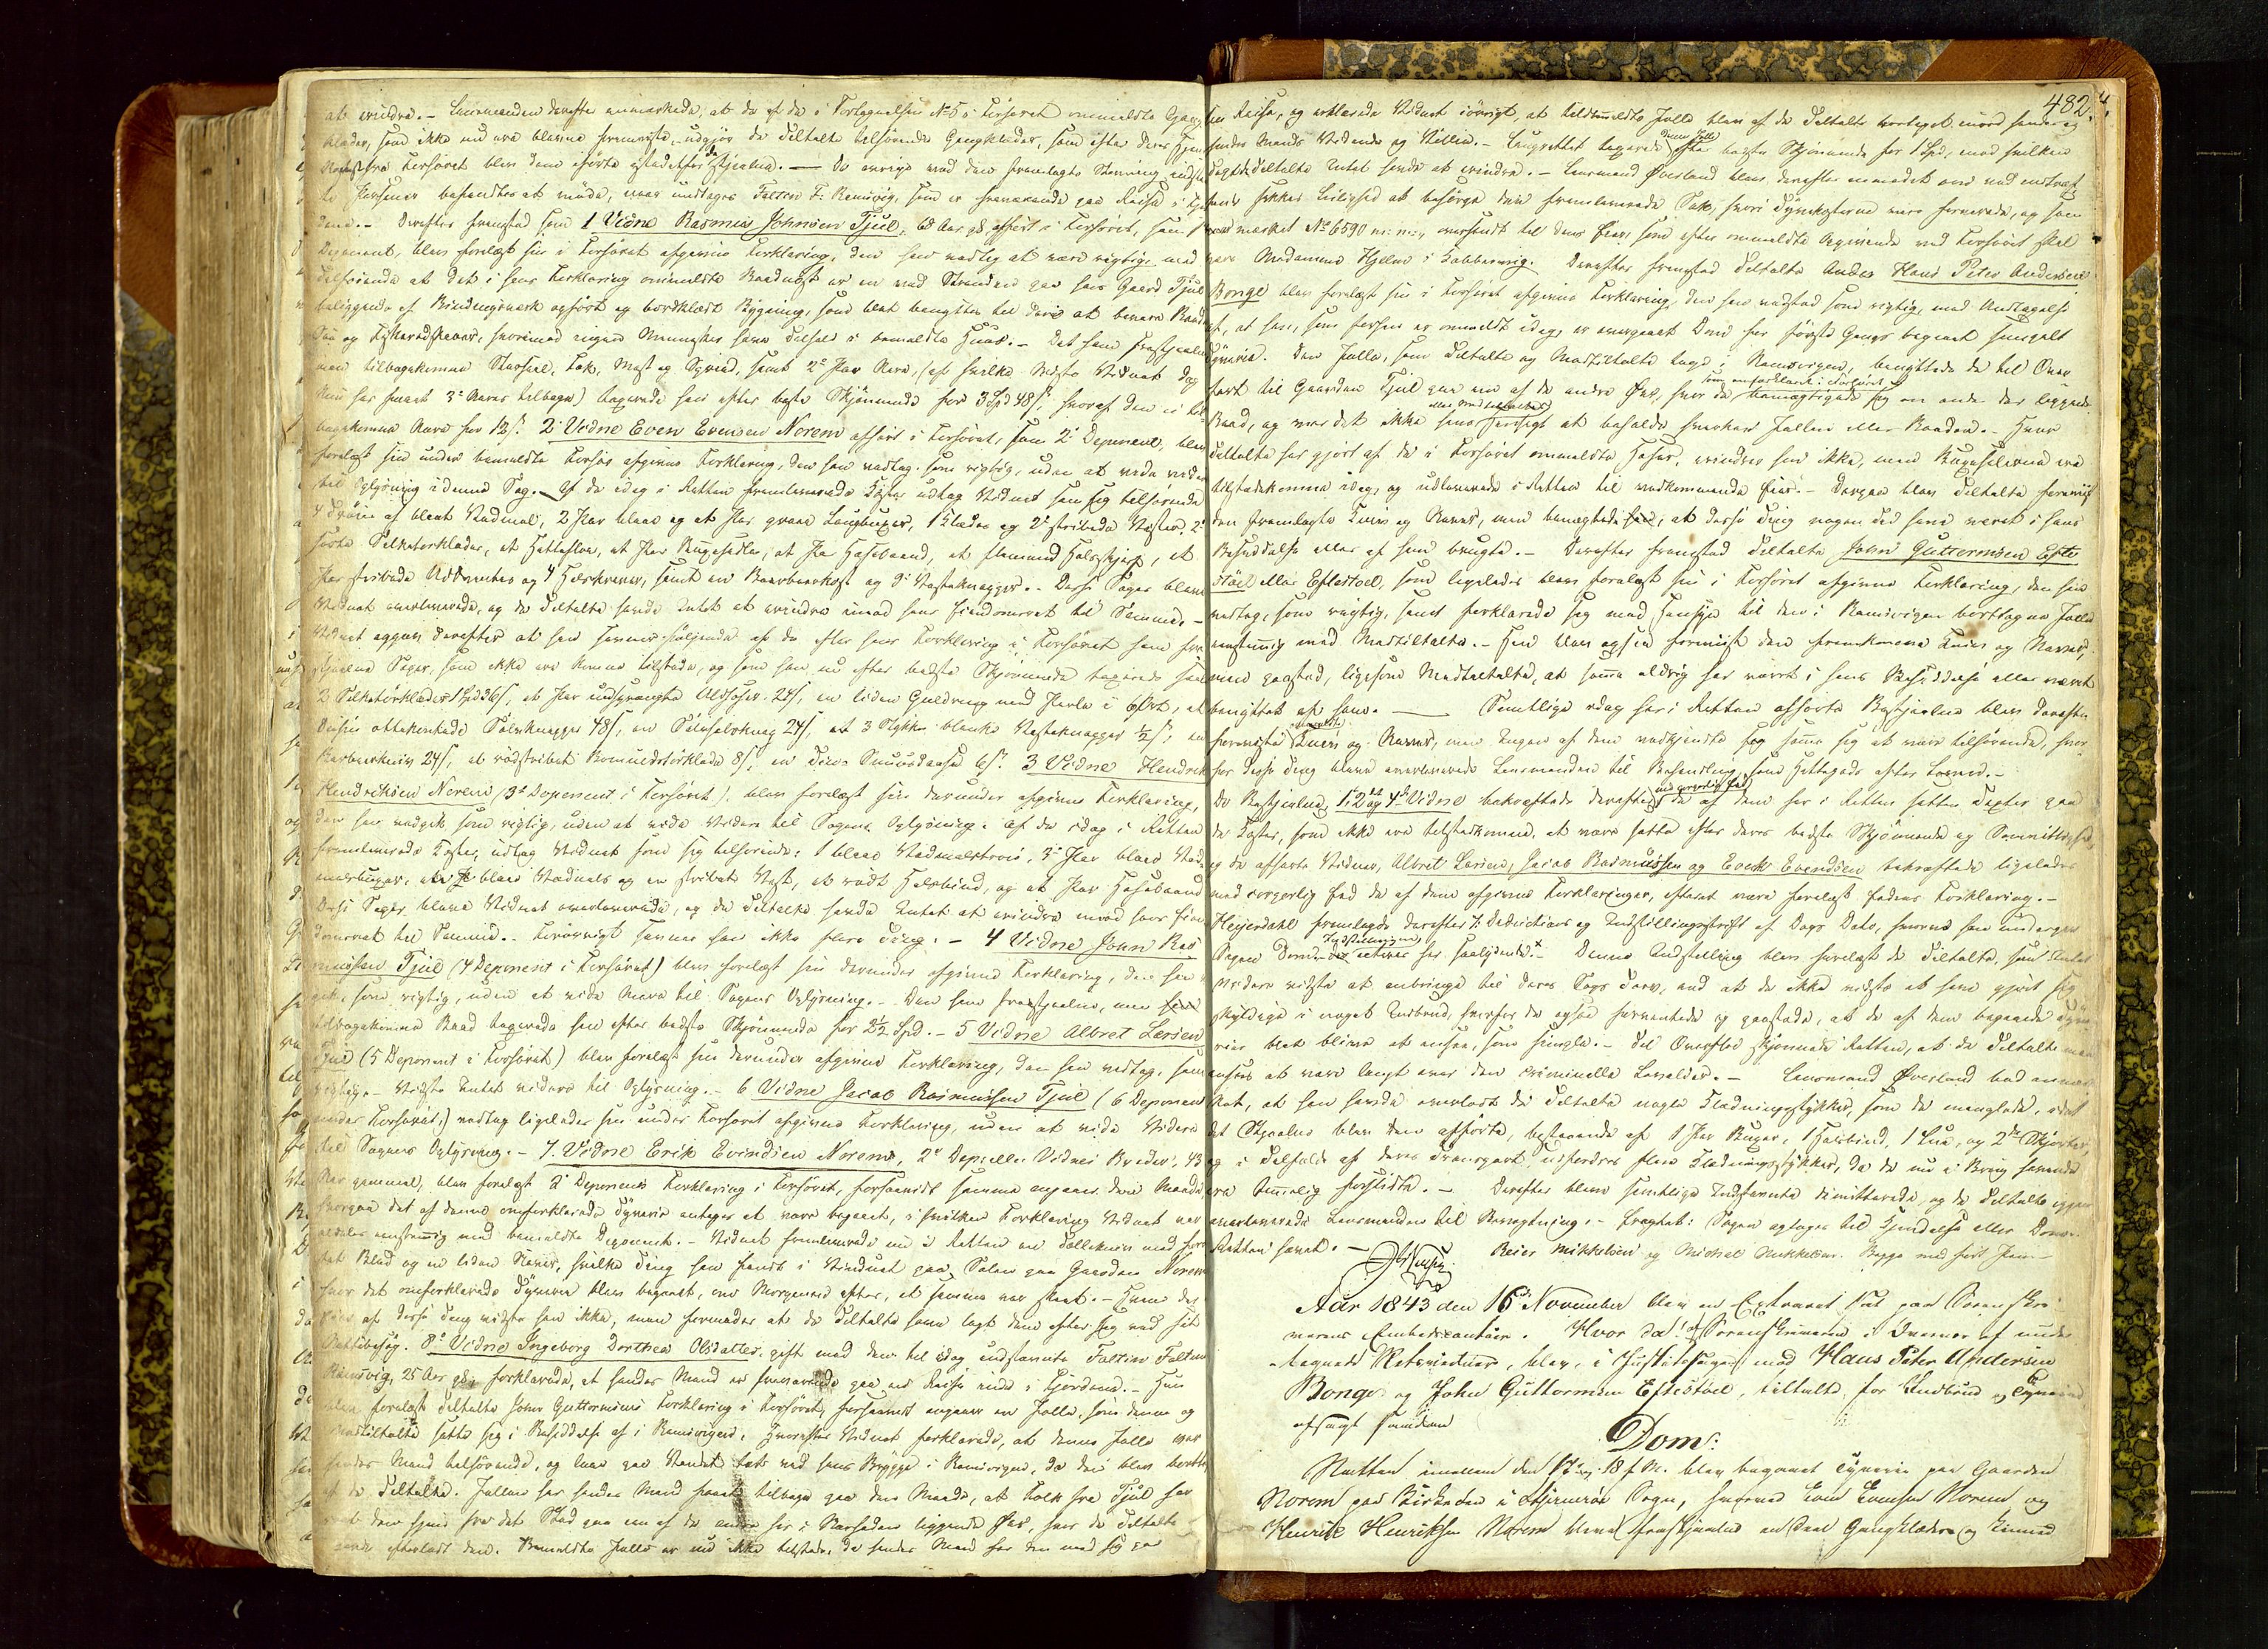 at erindre. - Lensmanden derefter anmærkede, at de af de i Fortegnelsen No 5 i Forhøret ommeldte Gang
klæder, som ikke nu ere blevne foreviste, udgjør de Tiltalte tilhørende Gangklæder, som efter deres
fra Forhøret blev dem iførte istedetfor de stjaalne. - De øvrige ved den fremlagte Stevning indstevn
te Personer befandtes at møde, naar undtages Falten F. Ramsvig, som er fraværende paa Reise i Fjor
dene. - Derefter fremstod som 1 Vidne Rasmus Johnsen Tjul, 68 Aar gl. afhørt i Forhøret, som 1
Deponent, blev forelæst sin i Forhøret afgivne Forklaring, den han vedtog at være rigtig, med
Tilføiende at det i hans Forklaring ommeldte Baadnøst er en ved Stranden paa hans Gaard Tjul
beliggende af Bindingsværk opført og bordklædt Bygning, som blot benyttes til deri at bevare Baad
Tou og Fiskeredskaber, hvorimod ingen Mennesker have Tilhold i bemeldte Huus. - Det ham frastjaalne
men tilbagekomne Storseil, Fok, Mast og Spriid, samt 2de Par Aarer, (af hvilke sidste Vidnet dog
kun har faaet 3de Aarer tilbage) taxerede han efter bedste Skjønnende for 3 Spd 48 s, hvoraf den ei til
bagekomne Aare for 12 s. 2det Vidne Even Evensen Norem afhørt i Forhøret, som 2det Deponent, blev
forelæst sin under bemeldte Forhør afgivne Forklaring, den han vedtog som rigtig, uden at vide videre
til Oplysning i denne Sag. - Af de idag i Retten fremleverede Koster udtog Vidnet som sig tilhørende
4 Trøier af blaat Vadmel, 2 Par blaae og et Par graae Langbuxer, 1 Klædes og 2de stribede Veste, 2de
sorte Silketørklæder, et Hattefloer, et Par Buxeseler, et Par Hosebaand, et Halstørklæ, et
Par stribede Uldvanter og 4 Halskraver, samt en Barberkost og 9 Vesteknapper. - Disse Sager bleve
Vidnet overleverede, og de Tiltalte havde Intet at erindre imod hans Eiendomsret til Samme. -
Vidnet opgav derefter at han savner følgende af de efter hans Forklaring i Forhøret ham fra
stjaalne Sager, som ikke ere komne tilstede, og som han nu efter bedste Skjønnende taxerede saa
2 Silketørklæder 1 Spd 36 s, et Par uldspundne Uldhoser 24 s, en liden Guldring med Perle i 60 s, et
Dusin ottekantede Sølvknapper 48 s, en Sølvhalsknap 24 s, et 3 Stykke blanke Vesteknapper 1/2 s, en
Barberkniv 24 s, et rødstribet Bomuldstørklæde 8 s, en Snuusdaase 6 s. 3 Vidne Hendrik
Hendriksen Norem (3die Deponent i Forhøret) blev forelæst sin derunder afgivne Forklaring,
den han vedgik som rigtig, uden at vide Videre til Sagens Oplysning. Af de idag i Retten
fremleverede Koster, udtog Vidnet som sig tilhørende: 1 blaae Vadmelstrøie, 3de Par blaae Vad
melsbuxer, et blaae Vadmels og en stribet Vest, et rødt Halsbind, og et Par Hosebaand
Disse Sager bleve Vidnet overleverede, og de Tiltalte havde Intet at erindre mod hans Eien
domsret til Samme. - Forøvrigt savner han ikke flere Ting. - 4 Vidne John Ras
mussen Tjul (4 Deponent i Forhøret) blev forelæst sin derunder afgivne Forklaring, den han
gik, som rigtig, uden at vide Mere til Sagens Oplysning. - Den ham frastjaalne, men
tilbagekomne Baad taxerede han efter bedste Skjønnende for 2 1/2 Spd. - 5 Vidne Albret Larsen
Tjul (5 Deponent i Forhøret) blev forelæst sin derunder afgivne Forklaring, den han vedtog, som
rigtig. - Vidste Intet videre til Oplysning. - 6 Vidne Jacob Rasmussen Tjul (6 Deponent
under Forhøret) vedtog ligeledes sin under Forhøret afgivne Forklaring, uden at vide Videre
til Sagens Oplysning. - 7. Vidne Erik Evindsen Norem, 2det Dep. eller Vidnes Broder, 43
Aar gammel, blev forelæst 2det Deponents Forklaring i Forhøret, forsaavidt samme angaaer den Maade
hvorpaa det af denne omforklarede Tyverie antages at være begaaet, i hvilken Forklaring Vidnet var
aldeles enstemmig med bemeldte Deponent. - Vidnet fremleverede nu i Retten en Tollekniv med
tet Blad og en liden Naver, hvilke Ting han fandt i Vinduet paa Salen paa Gaarden Norem
hvor det omforklarede Tyverie blev begaaet, om Morgenen efter, at samme var skeet. - Hvem der
Eier af disse Ting vidste han ikke, men formoder at de Tiltalte have lagt dem efter sig ved sit
Natbesøg. 8de Vidne Ingeborg Dorthea Olsdatter, gift med den til idag indstevnte Falten Falten
Ramsvig, 25 Aar gl. forklarede, at hendes Mand er fraværende paa en Reise inde i Fjordene. - Hun
blev forelæst Tiltalte John Guttormsens Forklaring i Forhøret, forsaavidt angaaer en Jolle, som denne og
Medtiltalte satte sig i Besiddelse af i Ramsvigen. Hvorefter Vidnet forklarede, at denne Jolle var
hendes Mand tilhørende, og laae paa Vandet tæt ved hans Brygge i Ramsvigen, da den blev borttagen
af de Tiltalte. Jollen har hendes Mand faaet tilbage paa den Maade, at Folk fra Tjul har
ført den hjem fra det Sted paa en af de andre her i Nærheden liggende Øer, hvor de Tiltalte
havde efterladt den. Bemeldte Jolle er nu ikke tilstede, da hendes Mand har den med sig paa
482
sin Reise, og erklærede Vidnet iøvrigt, at tidtmeldte Jolle blev af de Tiltalte borttaget imod hendes og
hendes Mands Vidende og Villie. - Laugrettet taxerede denne Jolle efter bedste Skjønnende for 1 Spd, mod hvilken
Taxt de Tiltalte Intet havde at erindre. - Lensmand Øverland blev derefter anmodet om ved indtræf
fende sikker Leilighed at besørge den fremleverede Sæk, hvori Tyvekosterne vare forvarede, og som
var mærket No 6590 m. m., oversendt til dens Eier som efter ommeldte Opgivende ved Forhøret skal
være Madamme Hjelm i Kobbervig. Derefter fremstod Tiltalte Anders Hans Peter Andersen
Bonge blev forelæst sin i Forhøret afgivne Forklaring, den han vedstod som rigtig, med Undtagelse
af, at han, som forhen er ommeldt idag, er overgaaet Dom for første Gang begaaet simpelt
Tyverie. Den Jolle, som Tiltalte og Medtiltalte toge i Ramsvigen, benyttede de til Over
fart til Gaarden Tjul paa en af de andre Øer, hvor de, som omforklaret i Forhøret, bemægtigede sig en anden der liggende
Baad, og var det ikke hans eller Medtiltaltes Hensigt at beholde hverken Jollen eller Baaden. - Hvor
Tiltalte har gjort af de i Forhøret ommeldte Hoser, erindrer han ikke, men Buxeselerne ere
tilstedekomne idag, og udleverede i Retten til vedkommende Eier. - Derpaa blev Tiltalte foreviist
den fremlagte Kniv og Naver, men benægtede han, at disse Ting nogen Tid have været i hans
Besiddelse eller af ham brugte. - Derefter fremstod Tiltalte John Guttormsen Efte
støel eller Eftestoel, som ligeledes blev forelæst sin i Forhøret afgivne Forklaring, den han
vedtog, som rigtig, samt forklarede sig med Hensyn til den i Ramsvigen borttagne Jolle
enstemmig med Medtiltalte. - Han blev ogsaa foreviist den fremkomne Kniv og Naver,
men paastod, ligesom Medtiltalte, at samme aldrig har været i hans Besiddelse eller været
benyttet af ham. - Samtlige idag her i Retten afhørte Bestjaalne bleve derefter
foreviste omhandlede Kniv og Naver, men Ingen af dem vedkjendte sig samme sig at være tilhørende, hvor
for disse Ting bleve overleverede Lensmanden til Behandling som Hittegods efter Loven. -
De Bestjaalne, 1, 2det og 4de Vidne bekræftede derefter med corporlig Eed de af dem her i Retten satte Taxter paa
de Koster, som ikke ere tilstedekomne, at være satte efter deres bedste Skjønnende og Samvittighed,
og de afhørte Vidner, Albret Larsen, Jacob Rasmussen og Evert Evendsen bekræftede ligeledes
med corporlig Eed de af dem afgivne Forklaringer, efterat være forelæst Eedens Forklaring. -
Heyerdahl fremlagde derefter 7. Deductions og Indstillingsskrift af Dags Dato, hvormed han undergav
Sagen Dom. Indstillingen indtages her saalydende. - Denne Indstilling blev forelæst de Tiltalte, som Intet
videre vidste at anbringe til deres Sags Tarv, end at de ikke vidste at have gjort sig
skyldige i noget Indbrud, hvorfor de ogsaa formente og paastode, at de af dem begaaede Tyve
rier blot bleve at ansee, som simple. - Til Overflod skjønnede Retten, at de Tiltalte maa
ansees at være langt over den criminelle Lavalder. - Lensmand Øverland bad anmær
ket, at han havde overladt de Tiltalte nogle Klædningsstykker, som de manglede, idet
det Stjaalne blev dem afført, bestaaende af 1 Par Buxer, 1 Halsbind, 1 Lue, og 2de Skjorter,
og i Tilfælde af deres Transport udfordres flere Klædningsstykker, da de nu i Brug havende
ere temmelig forslidte. - Derefter bleve samtlige Indstevnte dimitterede, og de Tiltalte igjen
overleverede Lensmanden til Bevogtning. - Eragtet: Sagen optages til Kjendelse eller Dom.
Retten hævet. -
Reier Mikkelsen og Michel Mikkelsen Begge med ført Pen -
Aar 1843 den 16 November blev en Extraret sat paa Sorenskri
verens Embedscontoir. Hvor da! af Sorenskriveren i Overvær af under
tegnede Retsvidner, blev, i Justitssagen mod Hans Peter Andersen
Bonge og John Guttormsen Eftestøel, tiltalte for Indbrud og Tyverie
afsagt saadan
Dom:
Natten imellem den 17 og 18 f. M. blev begaaet Tyverie paa Gaarden
Norem paa Birkeden i Stjernerøe Sogn, hvorved Even Evensen Norem og
Henrik Henriksen Norem bleve frastjaalne en Deel Gangklæder og